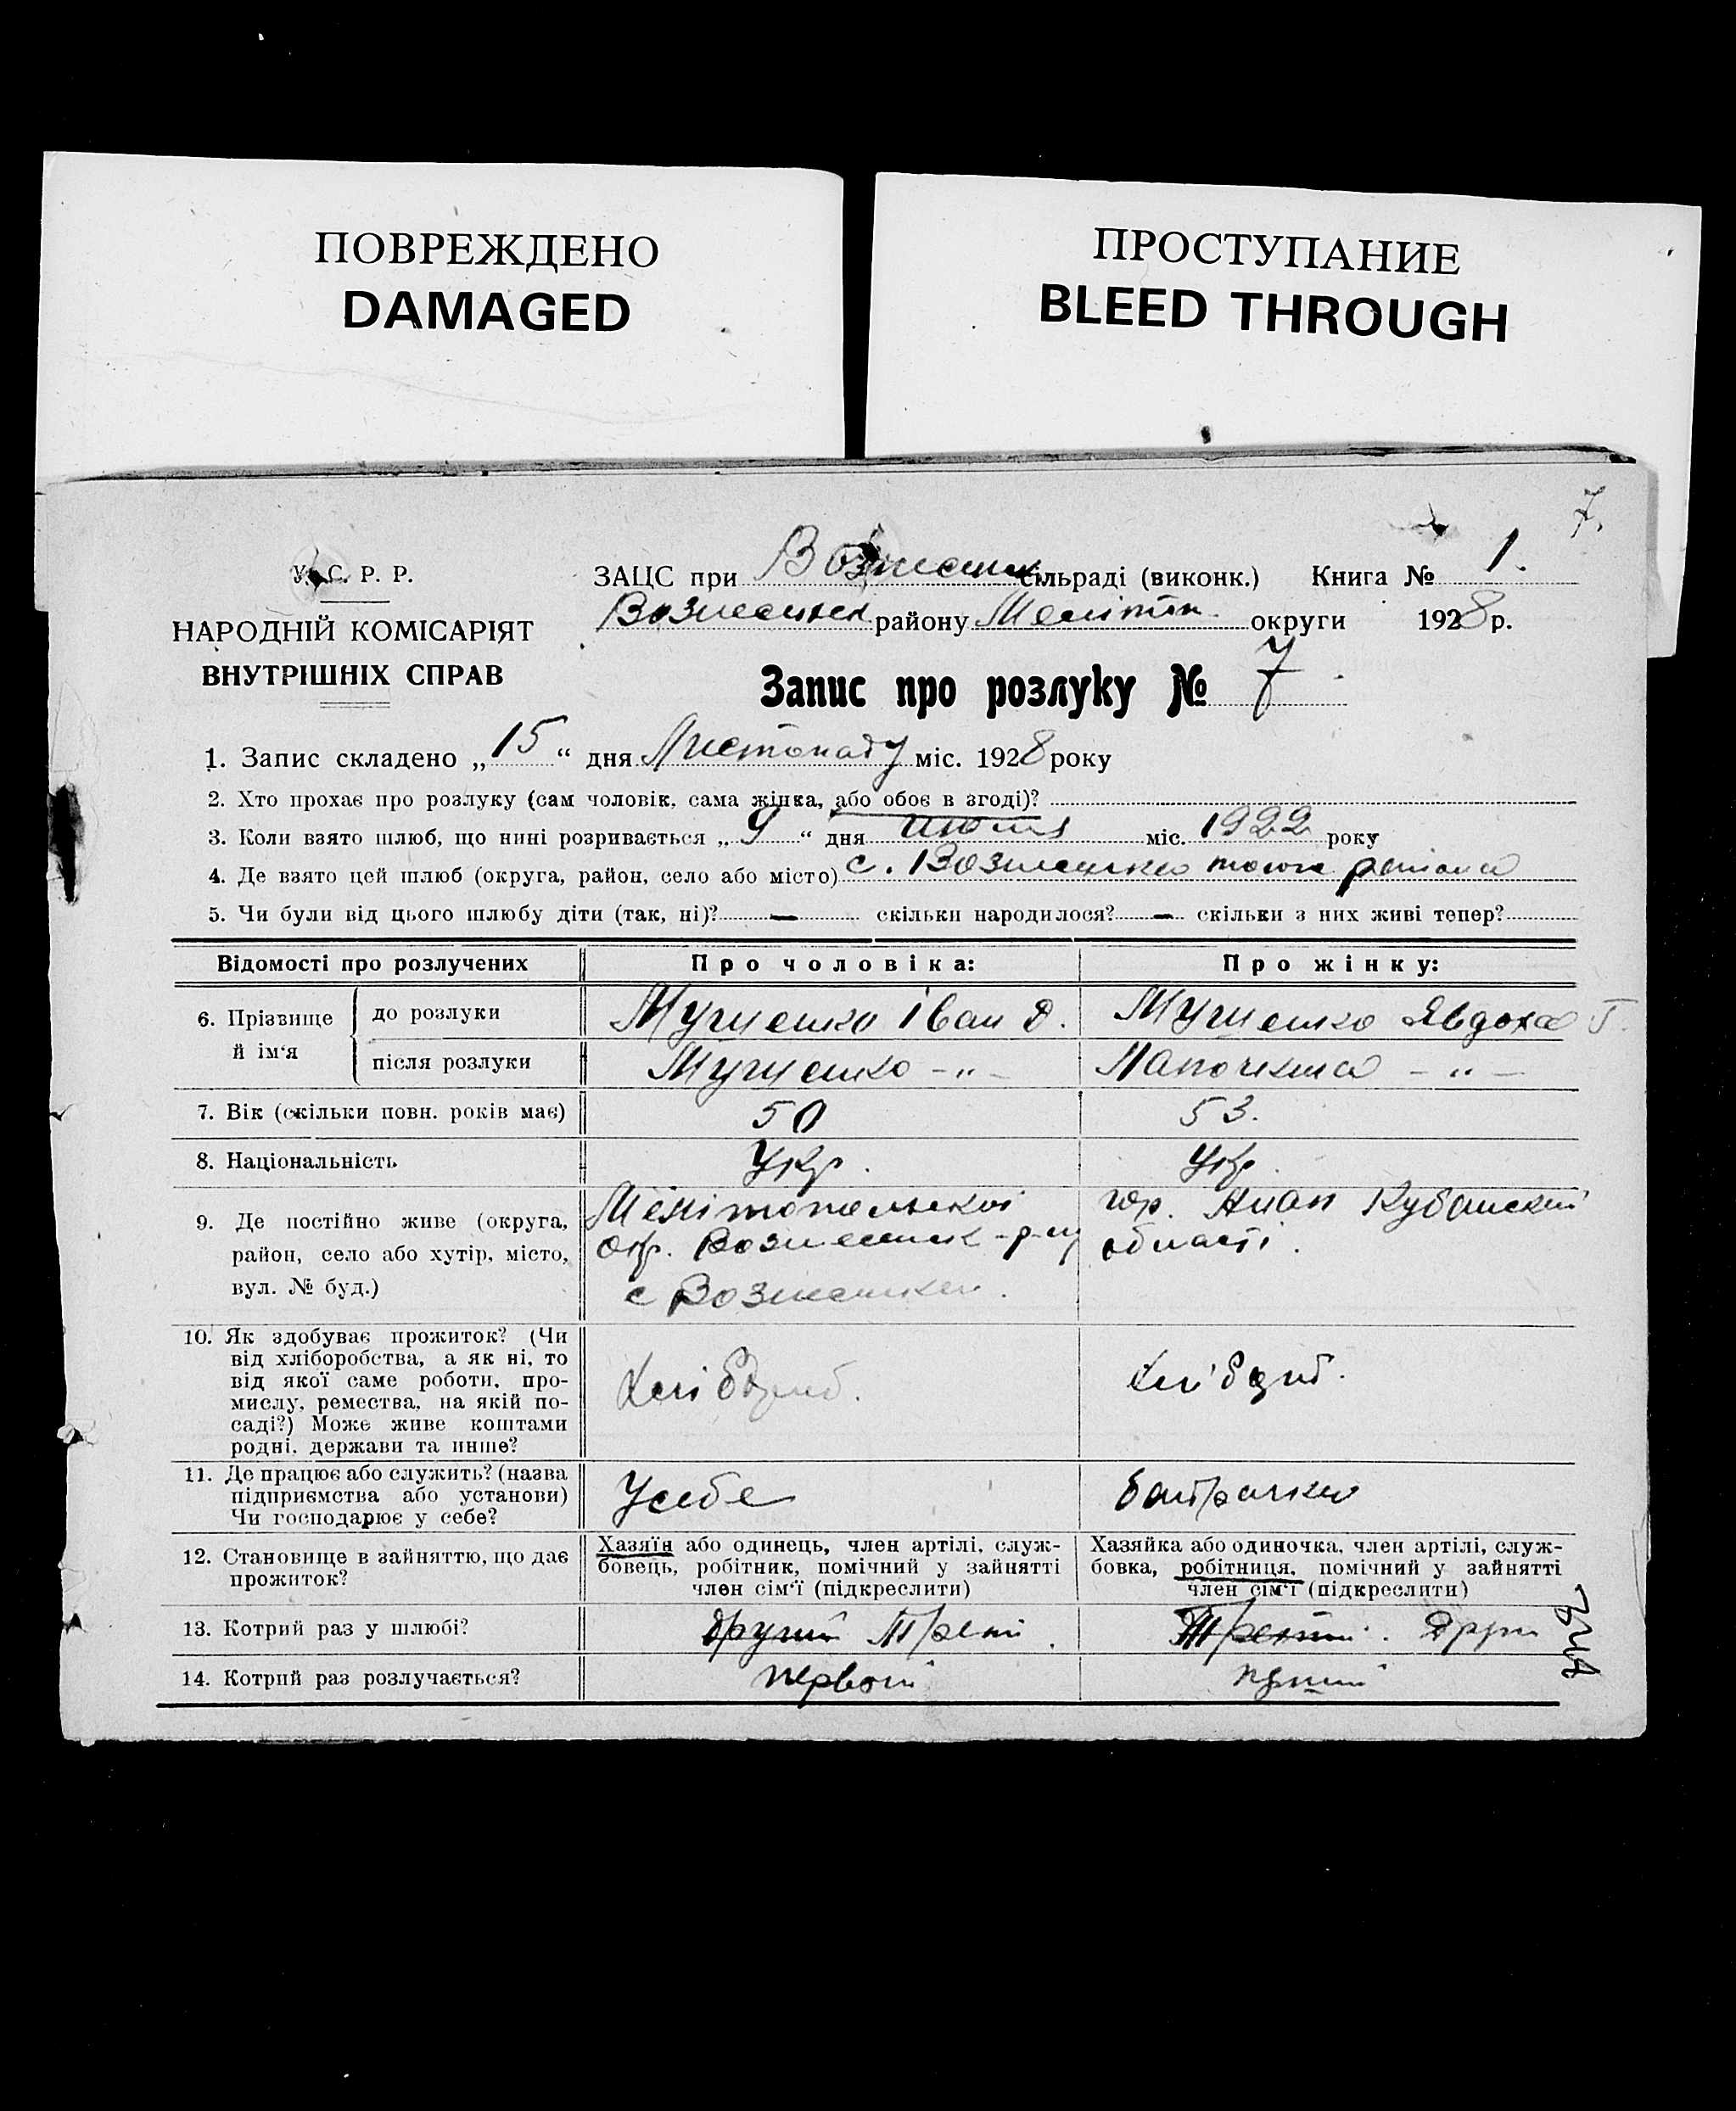 ПОВРЕЖДЕНО
DAMAGED
ПРОСТУПАНИЕ
BLEED THROUGH
7.
У. С. Р. Р.
НАРОДНІЙ КОМІСАРІЯТ
ВНУТРІШНІХ СПРАВ
ЗАЦС при Вознесенк. сільраді (виконк.) Книга № 1.
Вознесенск району Мелітоп. округи 1928 р.
Запис про розлуку № 7
1. Запис складено „15“ дня Листопаду міс. 1928 року
2. Хто прохає про розлуку (сам чоловік, сама жінка, або обоє в згоді)?
3. Коли взято шлюб, що нині розривається „9“ дня июля міс. 1922 року
4. Де взято цей шлюб (округа, район, село або місто) с. Вознесенка того району
5. Чи були від цього шлюбу діти (так, ні)? — скільки народилося? — скільки з них живі тепер?
Відомості про розлучених Про чоловіка: Про жінку:
6. Прізвище й ім‘я
до розлуки Іван Д. Явдоха Г.
після розлуки – „ – – „ –
7. Вік (скільки повн. років має) 50 53.
8. Національність Укр. Укр.
9. Де постійно живе (округа, район, село або хутір, місто, вул. № буд.)
Мелітопольської
окр. Вознесенск-р-ну
с Вознесенкі.
гор. Анап Кубанской
області.
10. Як здобуває прожиток? (Чи
від хліборобства, а як ні, то
від якої саме роботи, про-
мислу, ремества, на якій по-
саді?) Може живе коштами
родні, держави та инше?
11. Де працює або служить? (назва
підприємства або установи)
Чи господарює у себе?
У себе
батрачка
12. Становище в зайняттю, що дає
прожиток?
Хазяїн або одинець, член артілі, служ-
бовець, робітник, помічний у зайнятті
член сім‘ї (підкреслити)
Хазяйка або одиночка, член артілі, служ-
бовка, робітниця, помічний у зайнятті
член сім‘ї (підкреслити)
13. Котрий раз у шлюбі? другий Треті. Третій. Други
14. Котрий раз розлучається? первой перший